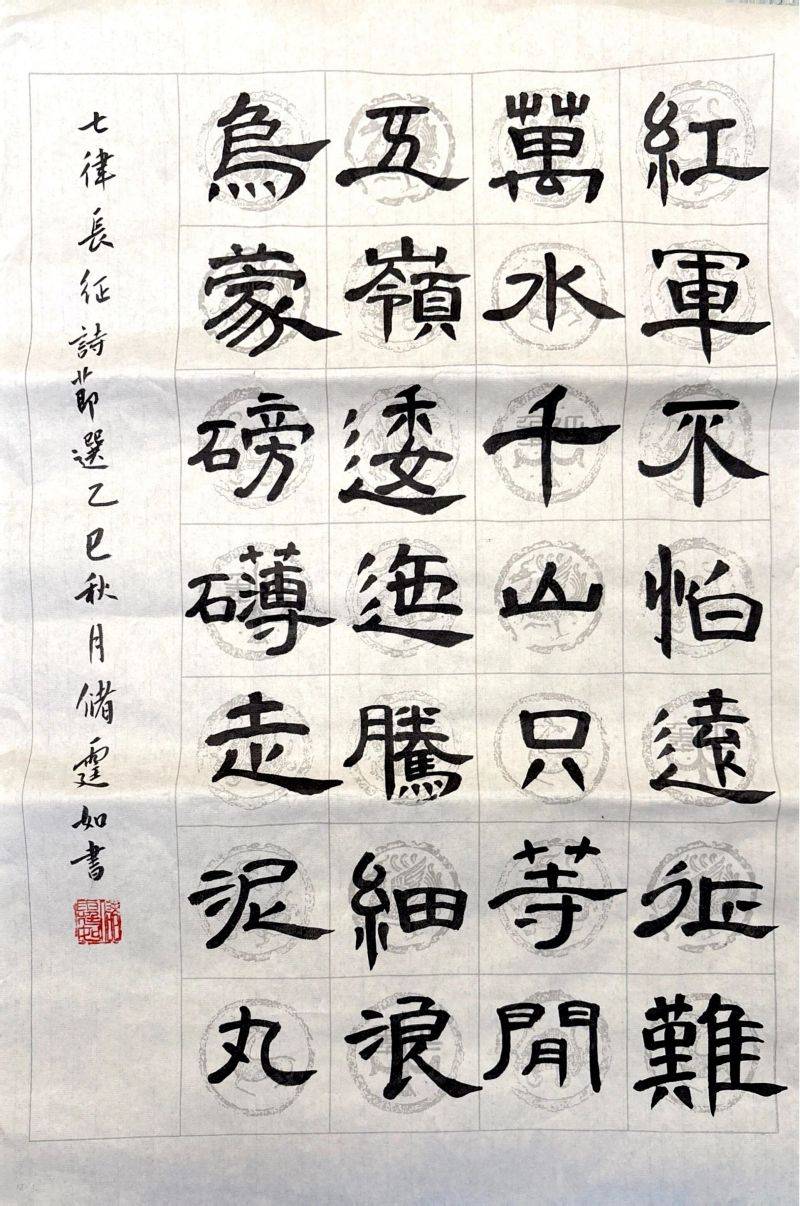 紅軍不怕遠征難
萬水千山只等閒
五嶺逶迤騰細浪
烏蒙磅礴走泥丸
七律長征詩節選乙巳秋月儲霆如書